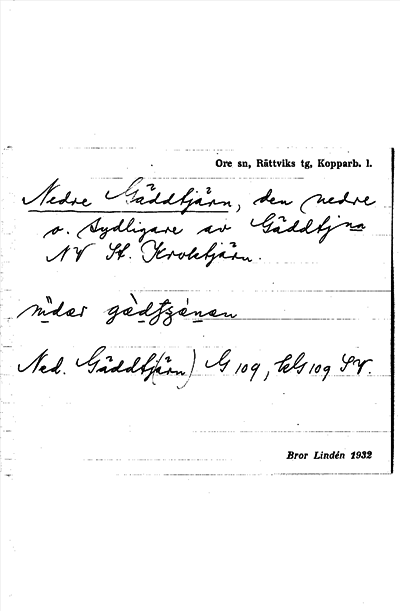 Ore sn, Rättviks tg, Kopparb. l.
Nedre Gäddtjärn, den nedre
o. sydligare av Gäddtjna
NV St. Kroktjärn.
Ned. Gäddtj(ärn) G 109, kG 109 SV.
Bror Lindén 1932